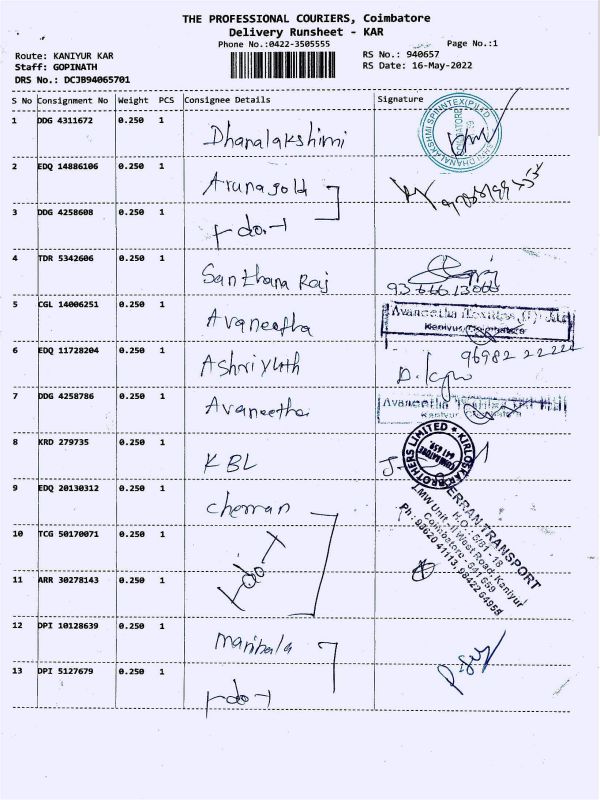 THE PROFESSIONAL COURIERS, Coimbatore
Delivery Runsheet - KAR
Phone No.:0422-3505555
Page No.:1
Route: KANIYUR KAR
RS No.: 940657
Staff: GOPINATH
RS Date: 16-May-2022
DRS No.: DCJB94065701
S No Consignment No Weight PCS Consignee Details Signature
1 DDG 4311672 0.250 1 Dhanalakshimi
2 EDQ 14886106 0.250 1 Arunagold
3 DDG 4258608 0.250 1 do
4 TDR 5342606 0.250 1 Santhana Raj
5 CGL 14006251 0.250 1 Avaneetha
Kaniyur, Coimbatore
6 EDQ 11728204 0.250 1 Ashriyath
96982 22224
7 DDG 4258786 0.250 1 Avaneetha
8 KRD 279735 0.250 1 KBL
KIRLOSKAR BROTHERS LIMITED
COIMBATORE
641 659
9 EDQ 20130312 0.250 1 cherran
10 TCG 50170071 0.250 1 do
11 ARR 30278143 0.250 1
ERRAN TRANSPORT
H.O.: 5/81 - 18
LMW Unit-II West Road, Kaniyur
Coimbatore - 641 659
Ph : 98620 41113, 98422 64955
12 DPI 10128639 0.250 1 Maribala
13 DPI 5127679 0.250 1 do